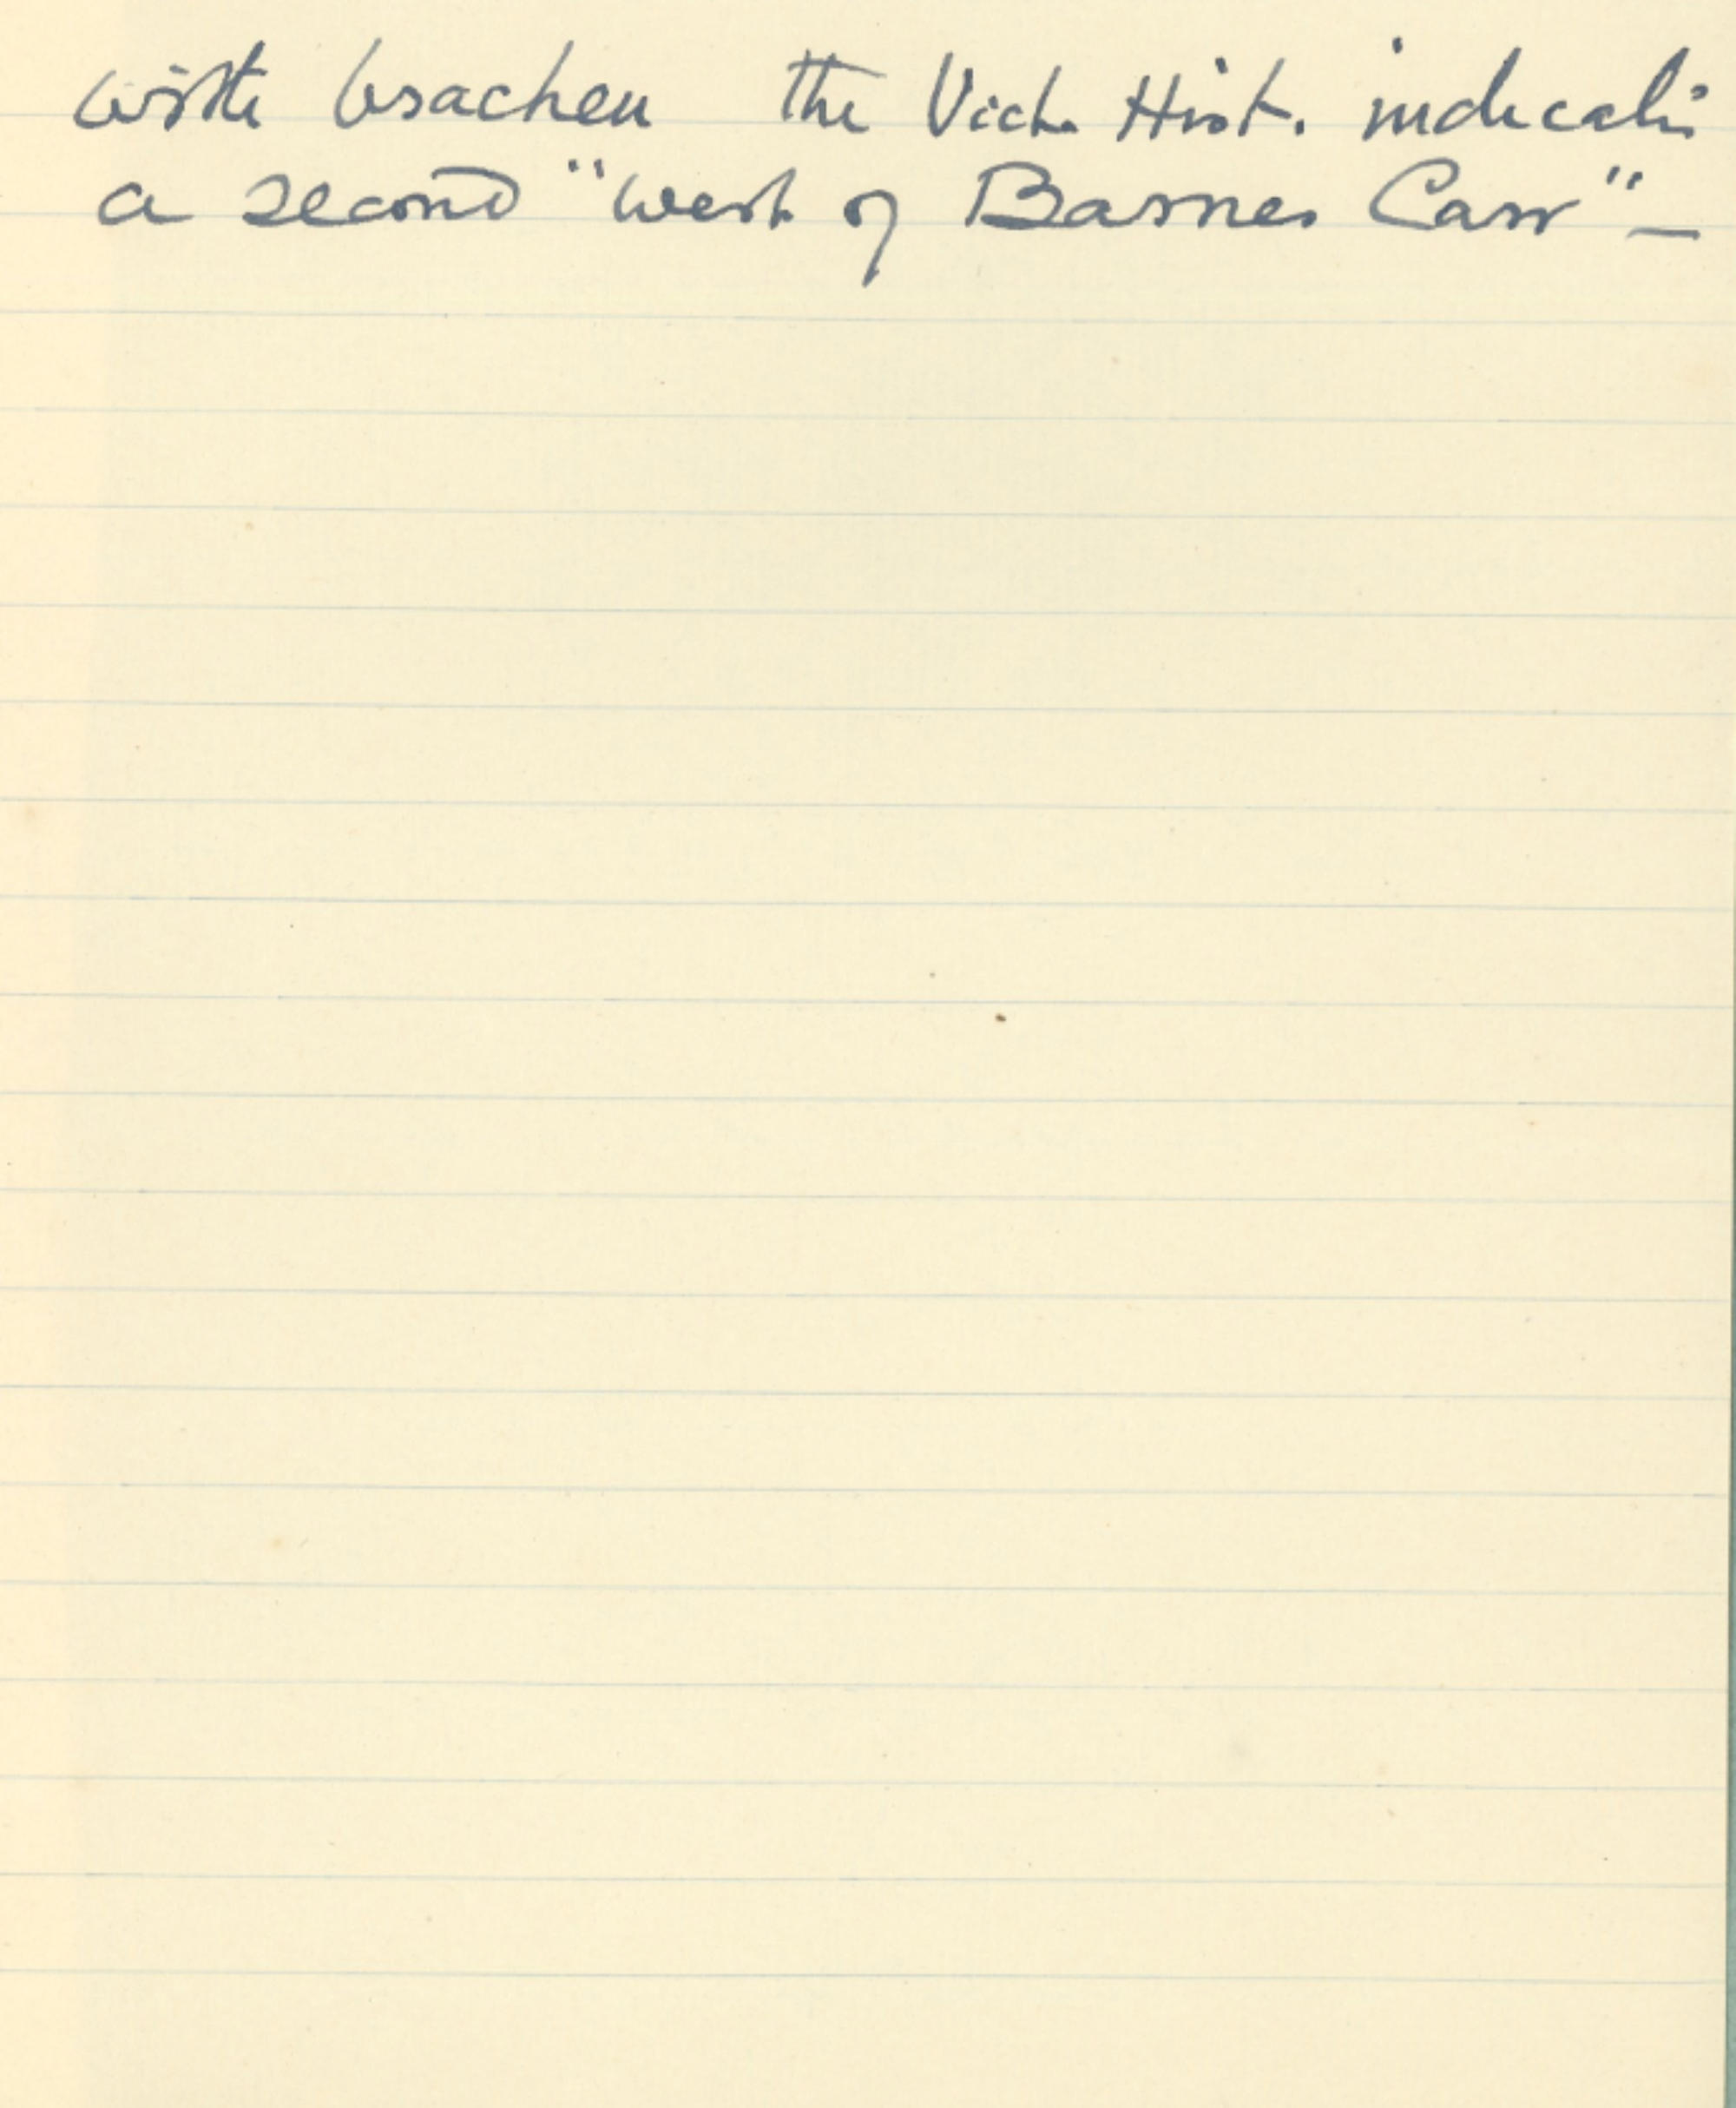 with bracken the Vict. Hist. indicates
a second "west of Barnes Carr" —